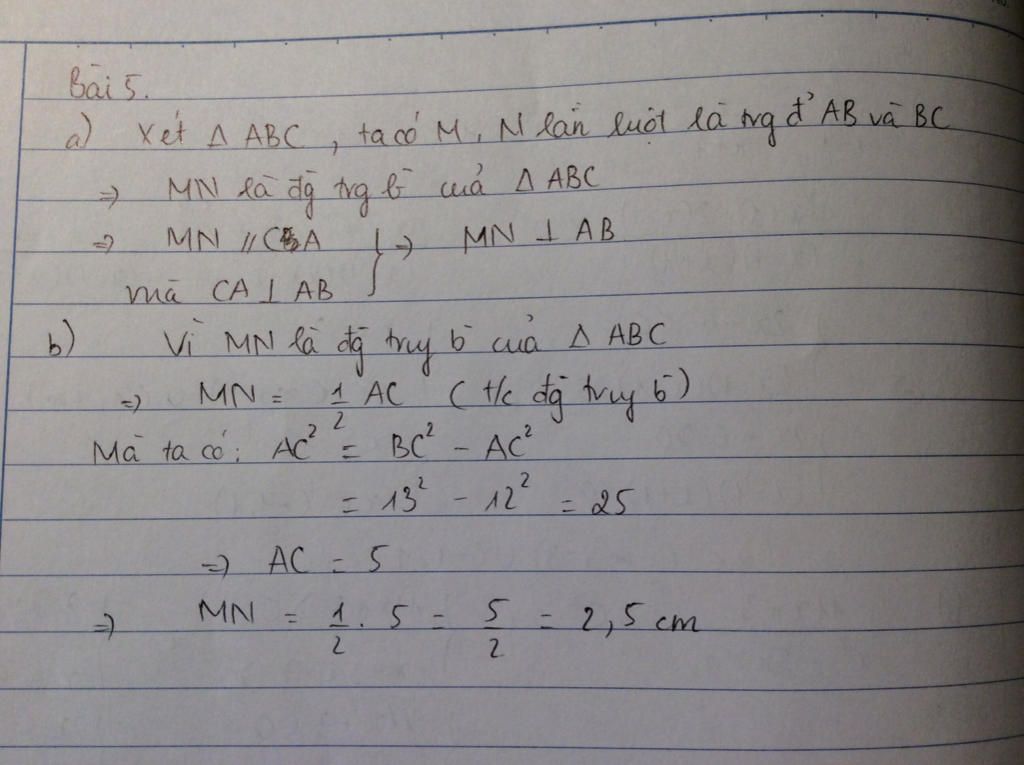 Bài 5.
a) Xét Δ ABC, ta có M, N lần lượt là trg đ' AB và BC
=> MN là đg trg b̀ của Δ ABC
=> MN // CA } => MN ⊥ AB
mà CA ⊥ AB
b) Vì MN là đg truy b̀ của Δ ABC
=> MN = 1/2 AC (t/c đg truy b̀)
Mà ta có: AC² = BC² - AC²
= 13² - 12² = 25
=> AC = 5
=> MN = 1/2 . 5 = 5/2 = 2,5 cm